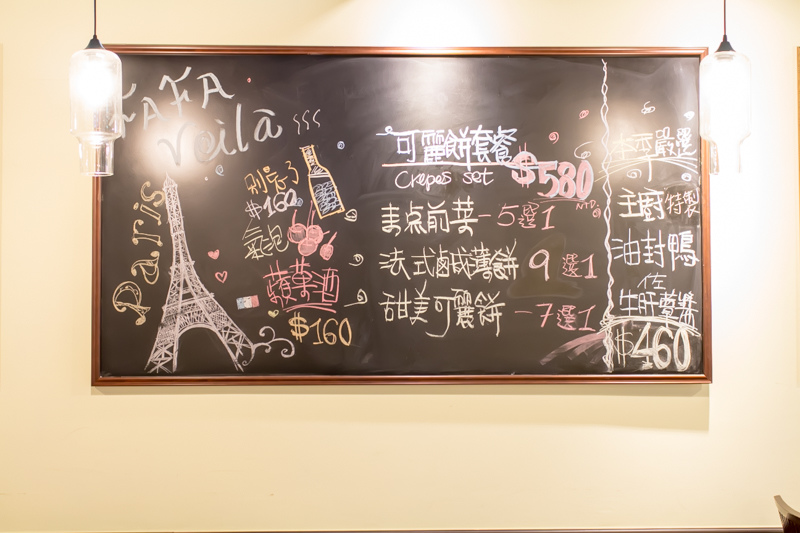 FAFA
Voilà
Paris
別忘了
$160
氣泡
蘋菓酒
$160
可麗餅套餐
Crepes set
$580
NTD.
麦点前菜-5選1
法式鹹薄餅 9選1
甜美可麗餅-7選1
本季嚴選
主廚特製
油封鴨
佐
生肝薯漿
$460